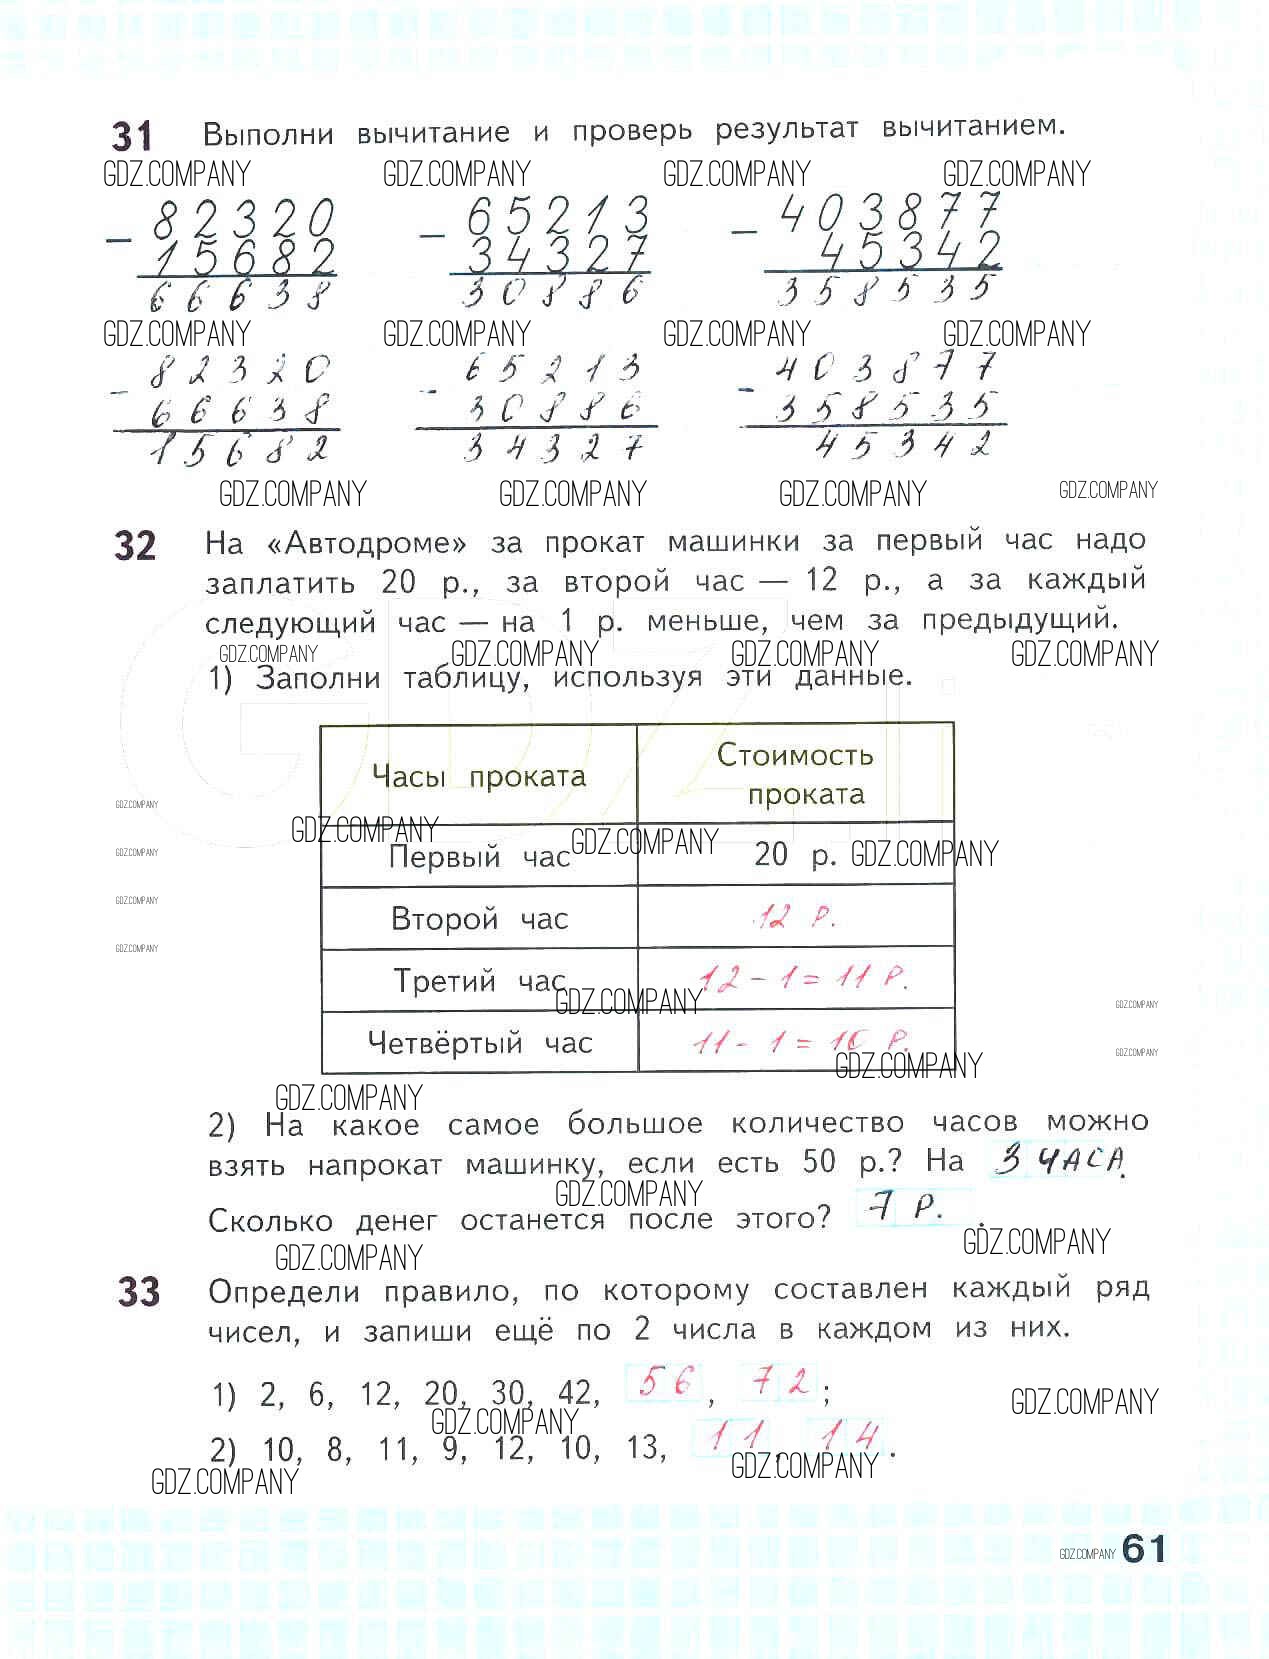 31 Выполни вычитание и проверь результат вычитанием.
GDZ.COMPANY GDZ.COMPANY GDZ.COMPANY GDZ.COMPANY
82320 65213 403877
− 15682 − 34327 − 45342
66638 30886 358535
GDZ.COMPANY GDZ.COMPANY GDZ.COMPANY GDZ.COMPANY
82320 65213 403877
− 66638 − 30886 − 358535
15682 34327 45342
GDZ.COMPANY GDZ.COMPANY GDZ.COMPANY GDZ.COMPANY
32 На «Автодроме» за прокат машинки за первый час надо
заплатить 20 р., за второй час — 12 р., а за каждый
следующий час — на 1 р. меньше, чем за предыдущий.
GDZ.COMPANY GDZ.COMPANY GDZ.COMPANY GDZ.COMPANY
1) Заполни таблицу, используя эти данные.
Часы проката Стоимость
проката
GDZ.COMPANY
GDZ.COMPANY GDZ.COMPANY GDZ.COMPANY
Первый час 20 р.
GDZ.COMPANY
GDZ.COMPANY
Второй час 12 р.
GDZ.COMPANY
Третий час 12 - 1 = 11 р.
GDZ.COMPANY GDZ.COMPANY
Четвёртый час 11 - 1 = 10 р.
GDZ.COMPANY GDZ.COMPANY
GDZ.COMPANY
2) На какое самое большое количество часов можно
взять напрокат машинку, если есть 50 р.? На 3 ЧАСА.
GDZ.COMPANY
Сколько денег останется после этого? 7 р. .
GDZ.COMPANY GDZ.COMPANY
33 Определи правило, по которому составлен каждый ряд
чисел, и запиши ещё по 2 числа в каждом из них.
1) 2, 6, 12, 20, 30, 42, 56, 72;
GDZ.COMPANY GDZ.COMPANY
2) 10, 8, 11, 9, 12, 10, 13, 11, 14.
GDZ.COMPANY GDZ.COMPANY
GDZ.COMPANY 61